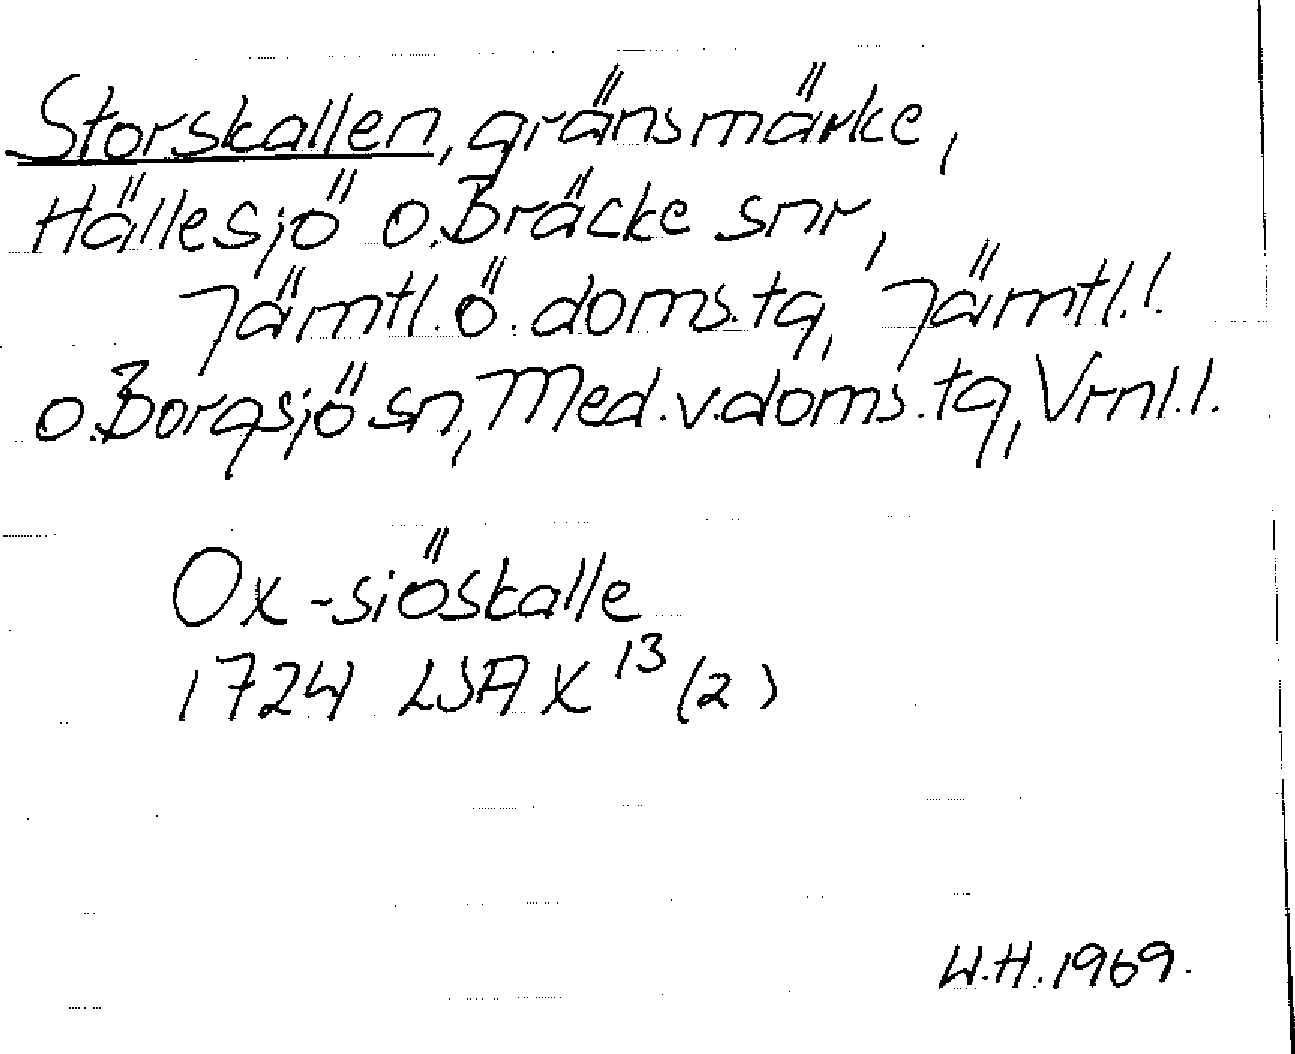 Storskallen, gränsmärke,
Hällesjö o. Bräcke snr,
Jämtl. ö. doms.tg, Jämtl. l.
o. Borgsjö sn, Med. v. doms.tg, Vrnl. l.
Ox-siöskalle
1724 LSA X 13 (2)
W.H. 1969.